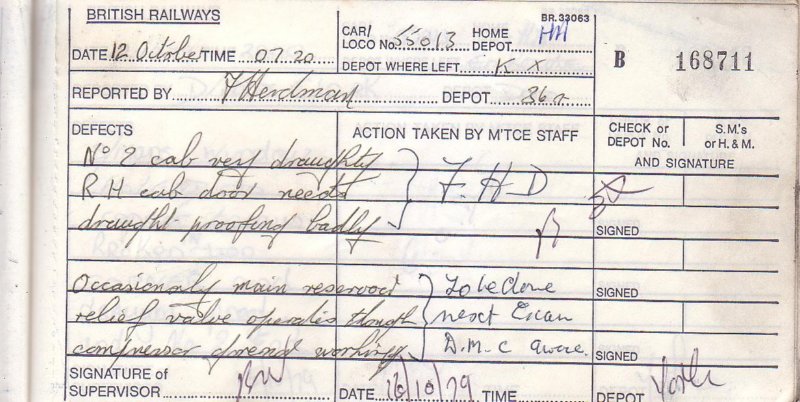 BRITISH RAILWAYS
BR.33063
DATE 12 October TIME 07.20
CAR/ LOCO No. 55013 HOME DEPOT HA
DEPOT WHERE LEFT K X
B 168711
REPORTED BY F Herdman DEPOT 36
DEFECTS
ACTION TAKEN BY M'TCE STAFF
CHECK or DEPOT No.
S.M.'s or H. & M.
AND SIGNATURE
No 2 cab very draughty
R H cab door needs
draught proofing badly
F. H D
SIGNED
Occasionally main reservoir
relief valve operates though
compressor working
To be done
next Exam
D.M.C aware.
SIGNED
SIGNED
SIGNATURE OF SUPERVISOR
DATE 16/10/79 TIME
DEPOT York